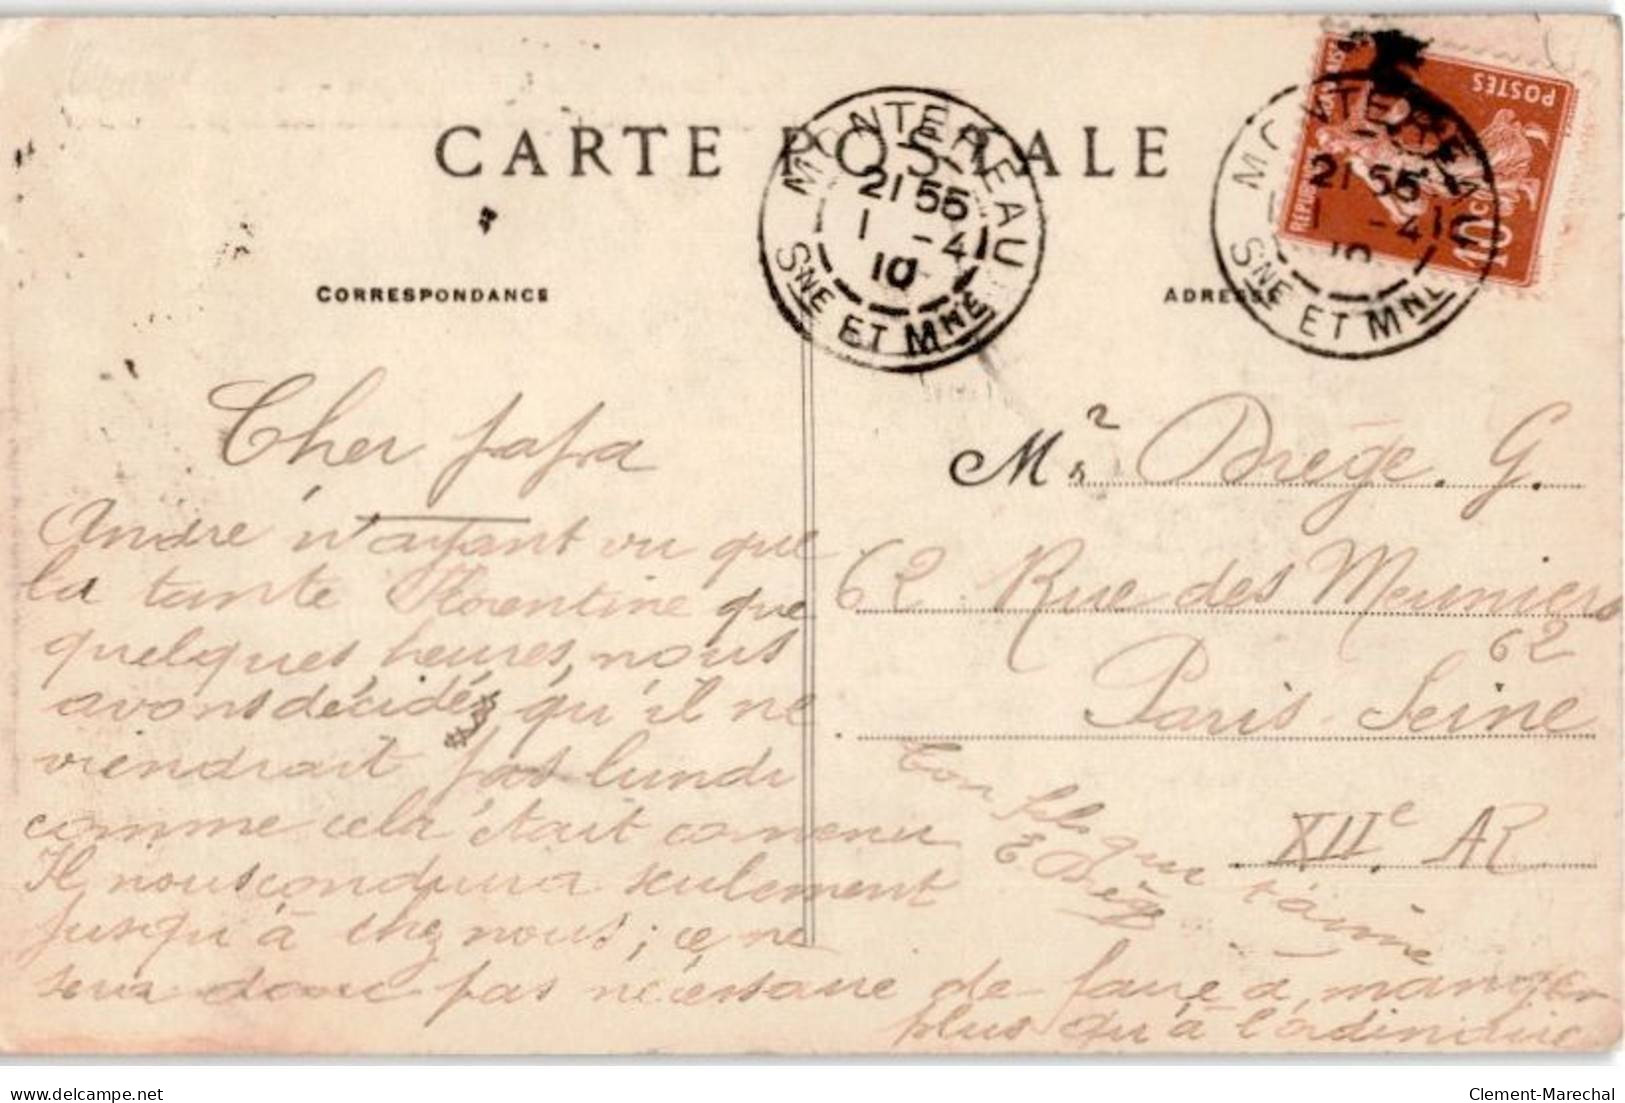 CARTE POSTALE
MONTEREAU
21 55
1 -4
10
SNE ET MNE
MONTEREAU
21 55
1 -4
10
SNE ET MNE
REPUBLIQUE FRANÇAISE
POSTES
10c
CORRESPONDANCE
ADRESSE
Cher papa
André n'ayant vu que
la tante Florentine que
quelques heures, nous
avons décidés qu'il ne
viendrait pas lundi
comme cela était convenu
Il nous conduira seulement
jusqu'à chez nous; ce ne
sera donc pas nécessaire de faire à manger
plus qu'à l'ordinaire
Ton fils qui t'aime
E Drège
Mr Drège. G.
62 Rue des Meuniers
62
Paris Seine
XIIe AR
delcampe.net
Clement-Marechal